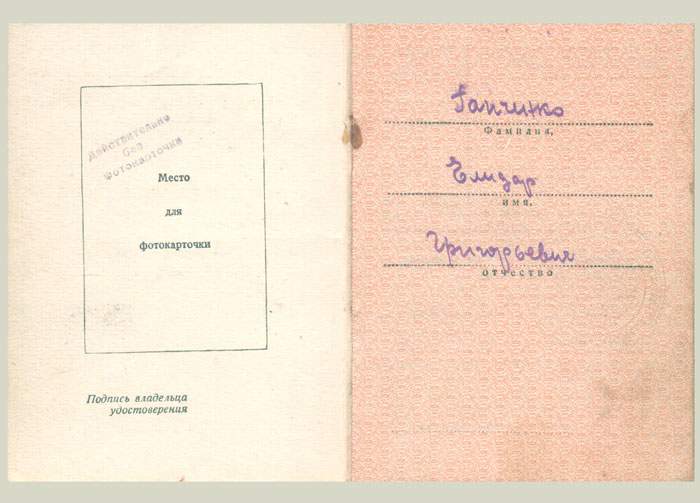 Действительно
без
фотокарточки
Место
для
фотокарточки
Подпись владельца
удостоверения
Ганчинко
Фамилия,
Елизар
имя,
Григорьевич
отчество